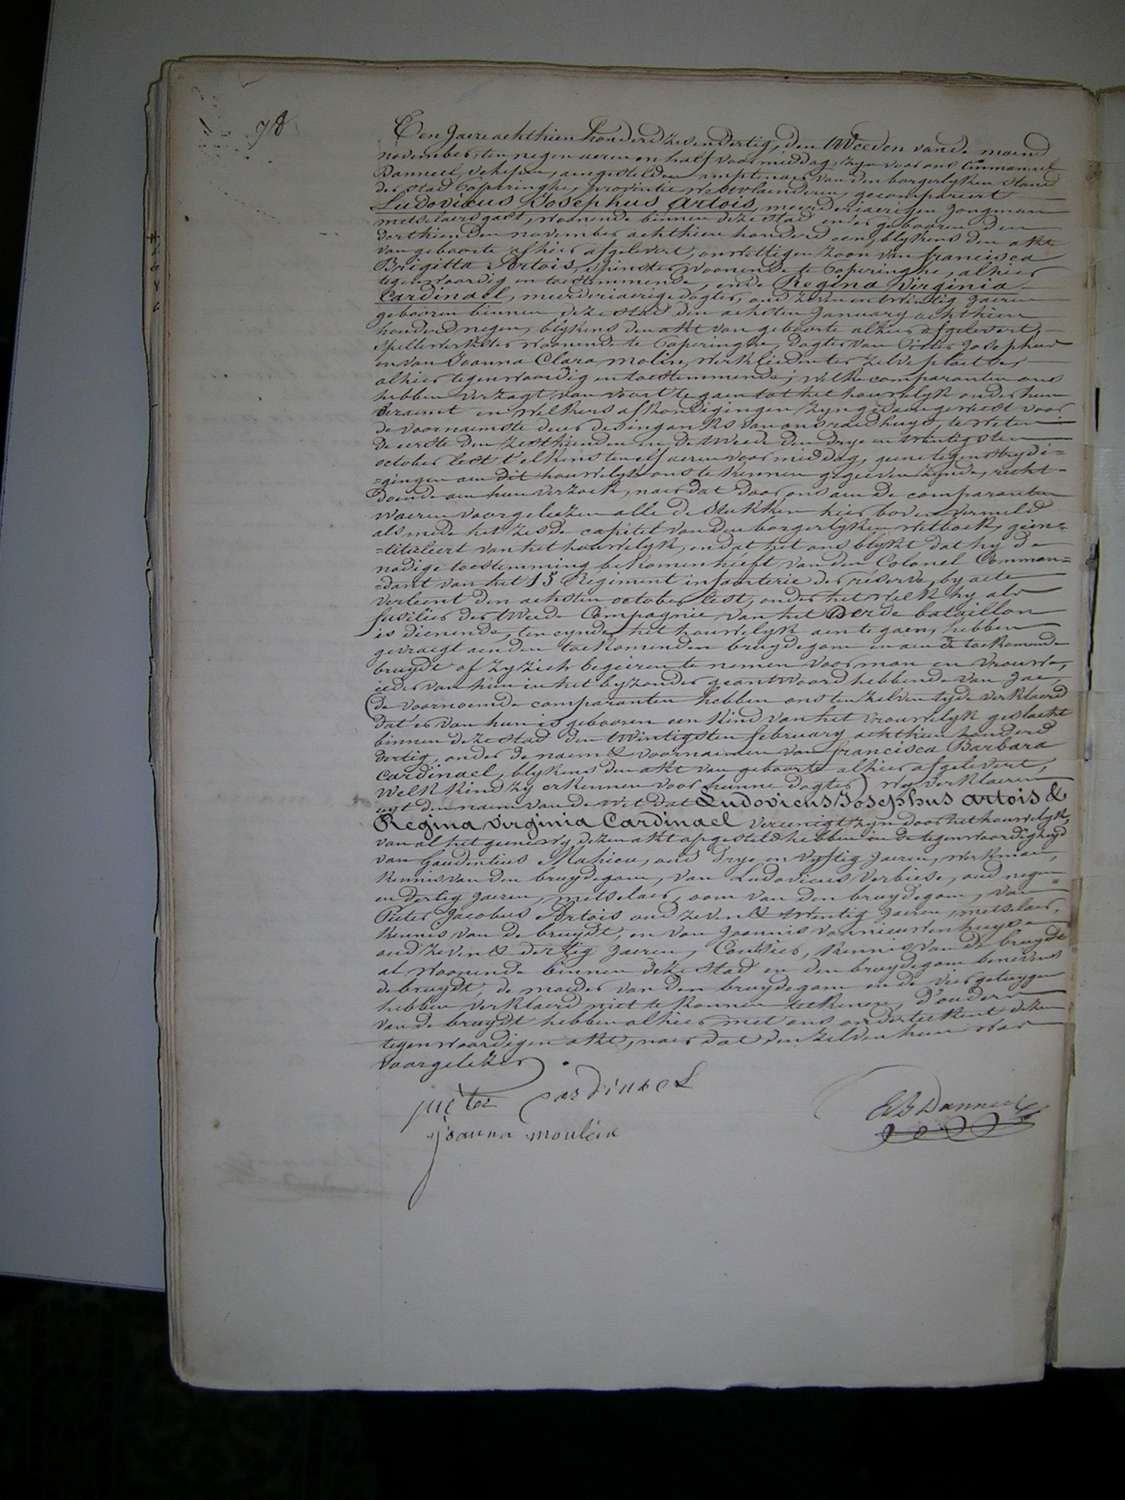 78
Ten Jaere achthien honderd zes en dertig, den tweeden van de maend
november, ten negen ueren en half voormiddag, zyn voor ons Emmanuel
Danneel, Schepen, aengestelden amptenaer van den borgerlyken stand
der stad Poperinghe, provintie Westvlaenderen, gecompareert
Ludovicus Josephus Artois, meerderjaerigen jongman
metselaersgast, woonende binnen deze stad en er gebooren den
derthienden november achthien honderd een, blykens den akt
van geboorte alhier afgelevert, onwettigen zoon van francisca
Brigitta Artois, spinster woonende te Poperinghe, alhier
tegenwoordig en toestemmende, ende Regina Virginia
Cardinael, meerderjaerige dogter, oud zeven en twintig jaeren
gebooren binnen deze stad den achsten January achthien
honderd negen, blykens den akt van geboorte alhier afgelevert,
spellewerkster woonende te Poperinghe, dogter van Pieter Josephus
en van Joanna Clara Molin, werklieden ter zelve plaetse,
alhier tegenwoordig en toestemmende; welke comparanten ons
hebben verzogt van voort te gaen tot het houwelyk onder hun
beraemt en welkers afkondigingen zyn gedaen geweest voor
de voornaemste deur den ingank van ons raedhuys, te weten
de eerste den zesthienden en de tweede den drye en twintigsten
october lest t'elkens ten elf ueren voormiddag, geene tegenstrydi=
=gingen aen dit houwelyk ons te kennen gegeven zynde, recht=
doende aen hun verzoek, naer dat door ons aen de comparanten
waeren voorgelezen alle de stukken hier boven vermeld
als mede het zesde capitel van den borgerlyken wetboek, gein=
=tituleert van het houwelyk, en dat het ons blykt dat hy de
noodige toestemming bekomen heeft van den Colonel Comman=
=dant van het 15 Regiment infanterie der reserve, by acte
verleent den achsten october lest, onder het welk hy als
fuselier der tweede Compagnie van het derde bataillon
is dienende, ten eynde het houwelyk aen te gaen, hebben
gevraegt aen den toekomenden bruydegom en aen de toekomende
bruydt of zy zich begeeren te nemen voor man en vrouwe,
ieder van hun in het byzonder geantwoord hebbende van Jae,
(de voornoemde comparanten hebben ons ten zelven tyde verklaerd
dat er van hun is gebooren een kind van het vrouwelyk geslacht
binnen deze stad den twintigsten february achthien honderd
dertig, onder de naem & voornaemen van francisca Barbara
Cardinael, blykens den akt van geboorte alhier afgelevert,
welk kind zy erkennen voor hunne dogter) wy verklaeren
uyt den naem van de wet dat Ludovicus Josephus Artois &
Regina Virginia Cardinael vereenigt zyn door het houwelyk,
van al het geene wy dezen akt opgesteld hebben in de tegenwoordigheyd
van Gaudentius Mahieu, oud drye en vyftig jaeren, werkman,
kennis van den bruydegom, van Ludovicus Verbiese, oud negen
en dertig jaeren, metselaer, oom van den bruydegom, van
Pieter Jacobus Artois oud zeven & twintig jaeren, metselaer,
kennis van de bruydt, en van Joannis vannieuwenhuyse
oud zeven & dertig jaeren, kennis van de bruydt
al woonende binnen deze stad en den bruydegom benevens
de bruydt, de moeder van den bruydegom en de vier getuygen
hebben verklaerd niet te konnen teekenen, d'ouders
van de bruydt hebben alhier met ons onderteekent dezen
tegenwoordigen akt, naer dat den zelven hun was
voorgelezen
pieter Cardinael
joanna moulein
E B Danneel